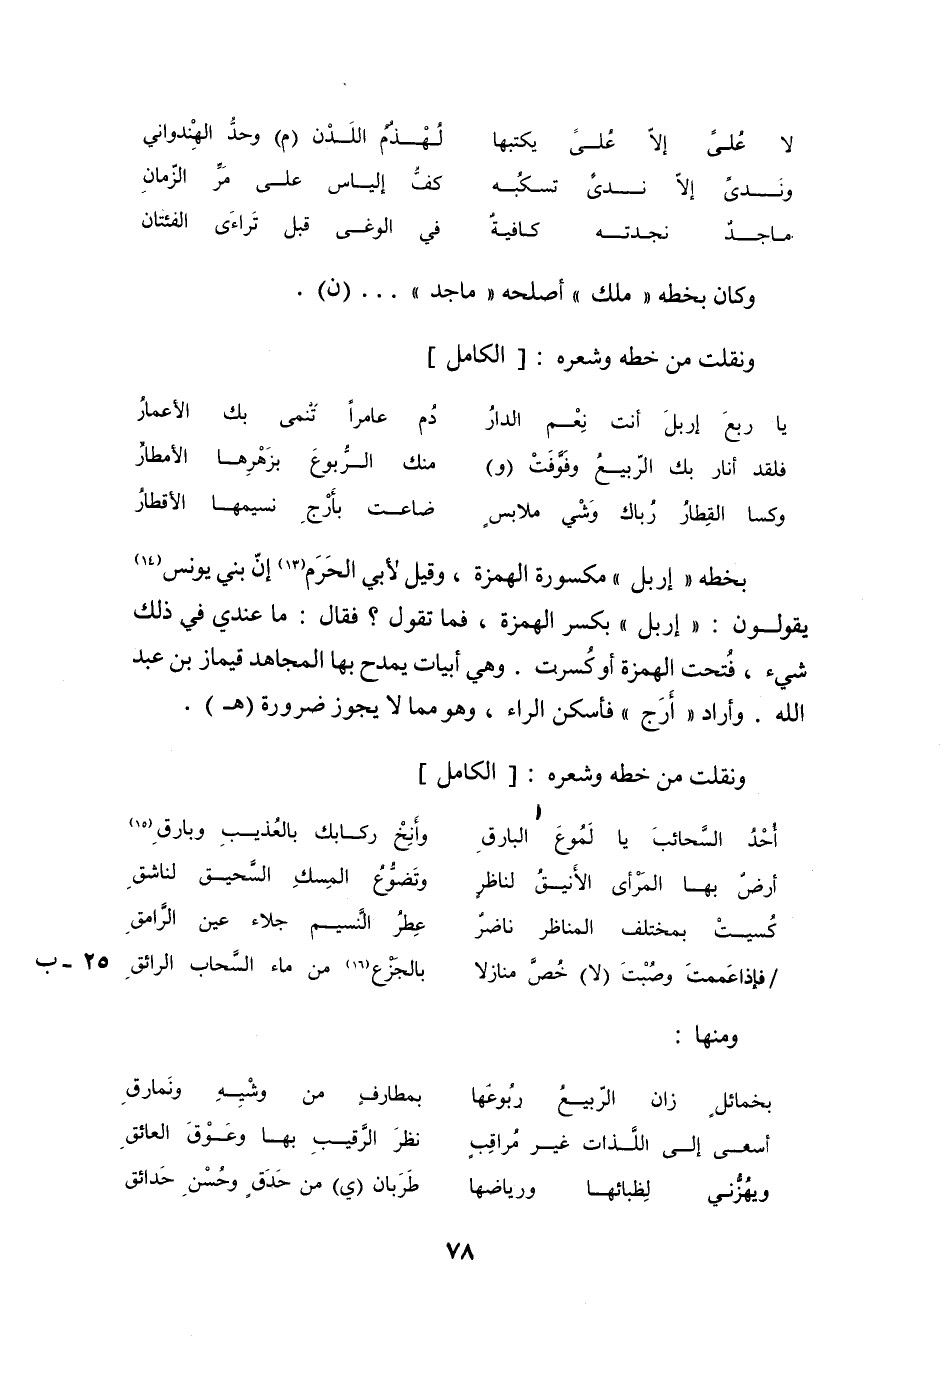 لا عُلىً إلاّ عُلىً يكتبها لُهْذمُ اللَدْن (م) وحدُّ الهِنْدواني
ونَدىً إلاّ نَدىً تسكبُه كفُّ إلياس على مَرِّ الزّمانِ
ماجدٌ نجدته كافيةٌ في الوغى قبل تَراءَى الفئتان
وكان بخطه « ملك » أصلحه « ماجد » . . . (ن) .
ونقلت من خطه وشعره : [ الكامل ]
يا ربعَ إربلَ أنت نِعْم الدارُ دُم عامراً تُنْمى بك الأعمارُ
فلقد أنار بك الرّبيعُ وفَوَّفَتْ (و) منك الرُّبوعَ بزَهْرِها الأمطارُ
وكسا القِطارُ رُباك وَشْي ملابسٍ ضاعت بأَرْجِ نسيمها الأقطارُ
بخطه « إربل » مكسورة الهمزة ، وقيل لأبي الحَرَم(١٣) إنّ بني يونس(١٤)
يقولون : « إربل » بكسر الهمزة ، فما تقول ؟ فقال : ما عندي في ذلك
شيء ، فُتحت الهمزة أو كُسرت . وهي أبيات يمدح بها المجاهد قيماز بن عبد
الله . وأراد « أَرَج » فأسكن الراء ، وهو مما لا يجوز ضرورة (هـ) .
ونقلت من خطه وشعره : [ الكامل ]
أُحْدُ السَّحائبَ يا لَمُوعَ البارقِ وأَنِخْ ركابك بالعُذيبِ وبارقِ(١٥)
أرضٌ بها المَرْأى الأنيقُ لناظرٍ وتَضوُّعُ المِسكِ السَّحيقِ لناشقِ
كُسيتْ بمختلف المناظر ناضرٌ عِطرُ النَّسيم جلاء عين الرَّامقِ
/ فإذا عَممتَ وصُبْتَ (لا) خُصَّ منازلا بالجَزْع(١٦) من ماء السَّحاب الرائقِ ٢٥ - ب
ومنها :
بخمائلٍ زان الرّبيعُ ربُوعَها بمطارفٍ من وشْيِهِ ونَمارقِ
أسعى إلى اللَّذات غير مُراقِبٍ نظرَ الرَّقيبِ بها وعَوْقَ العائقِ
ويهُزُّني لِظبائها ورياضها طَرَبان (ي) من حَدَقٍ وحُسْنِ حَدائق
٧٨